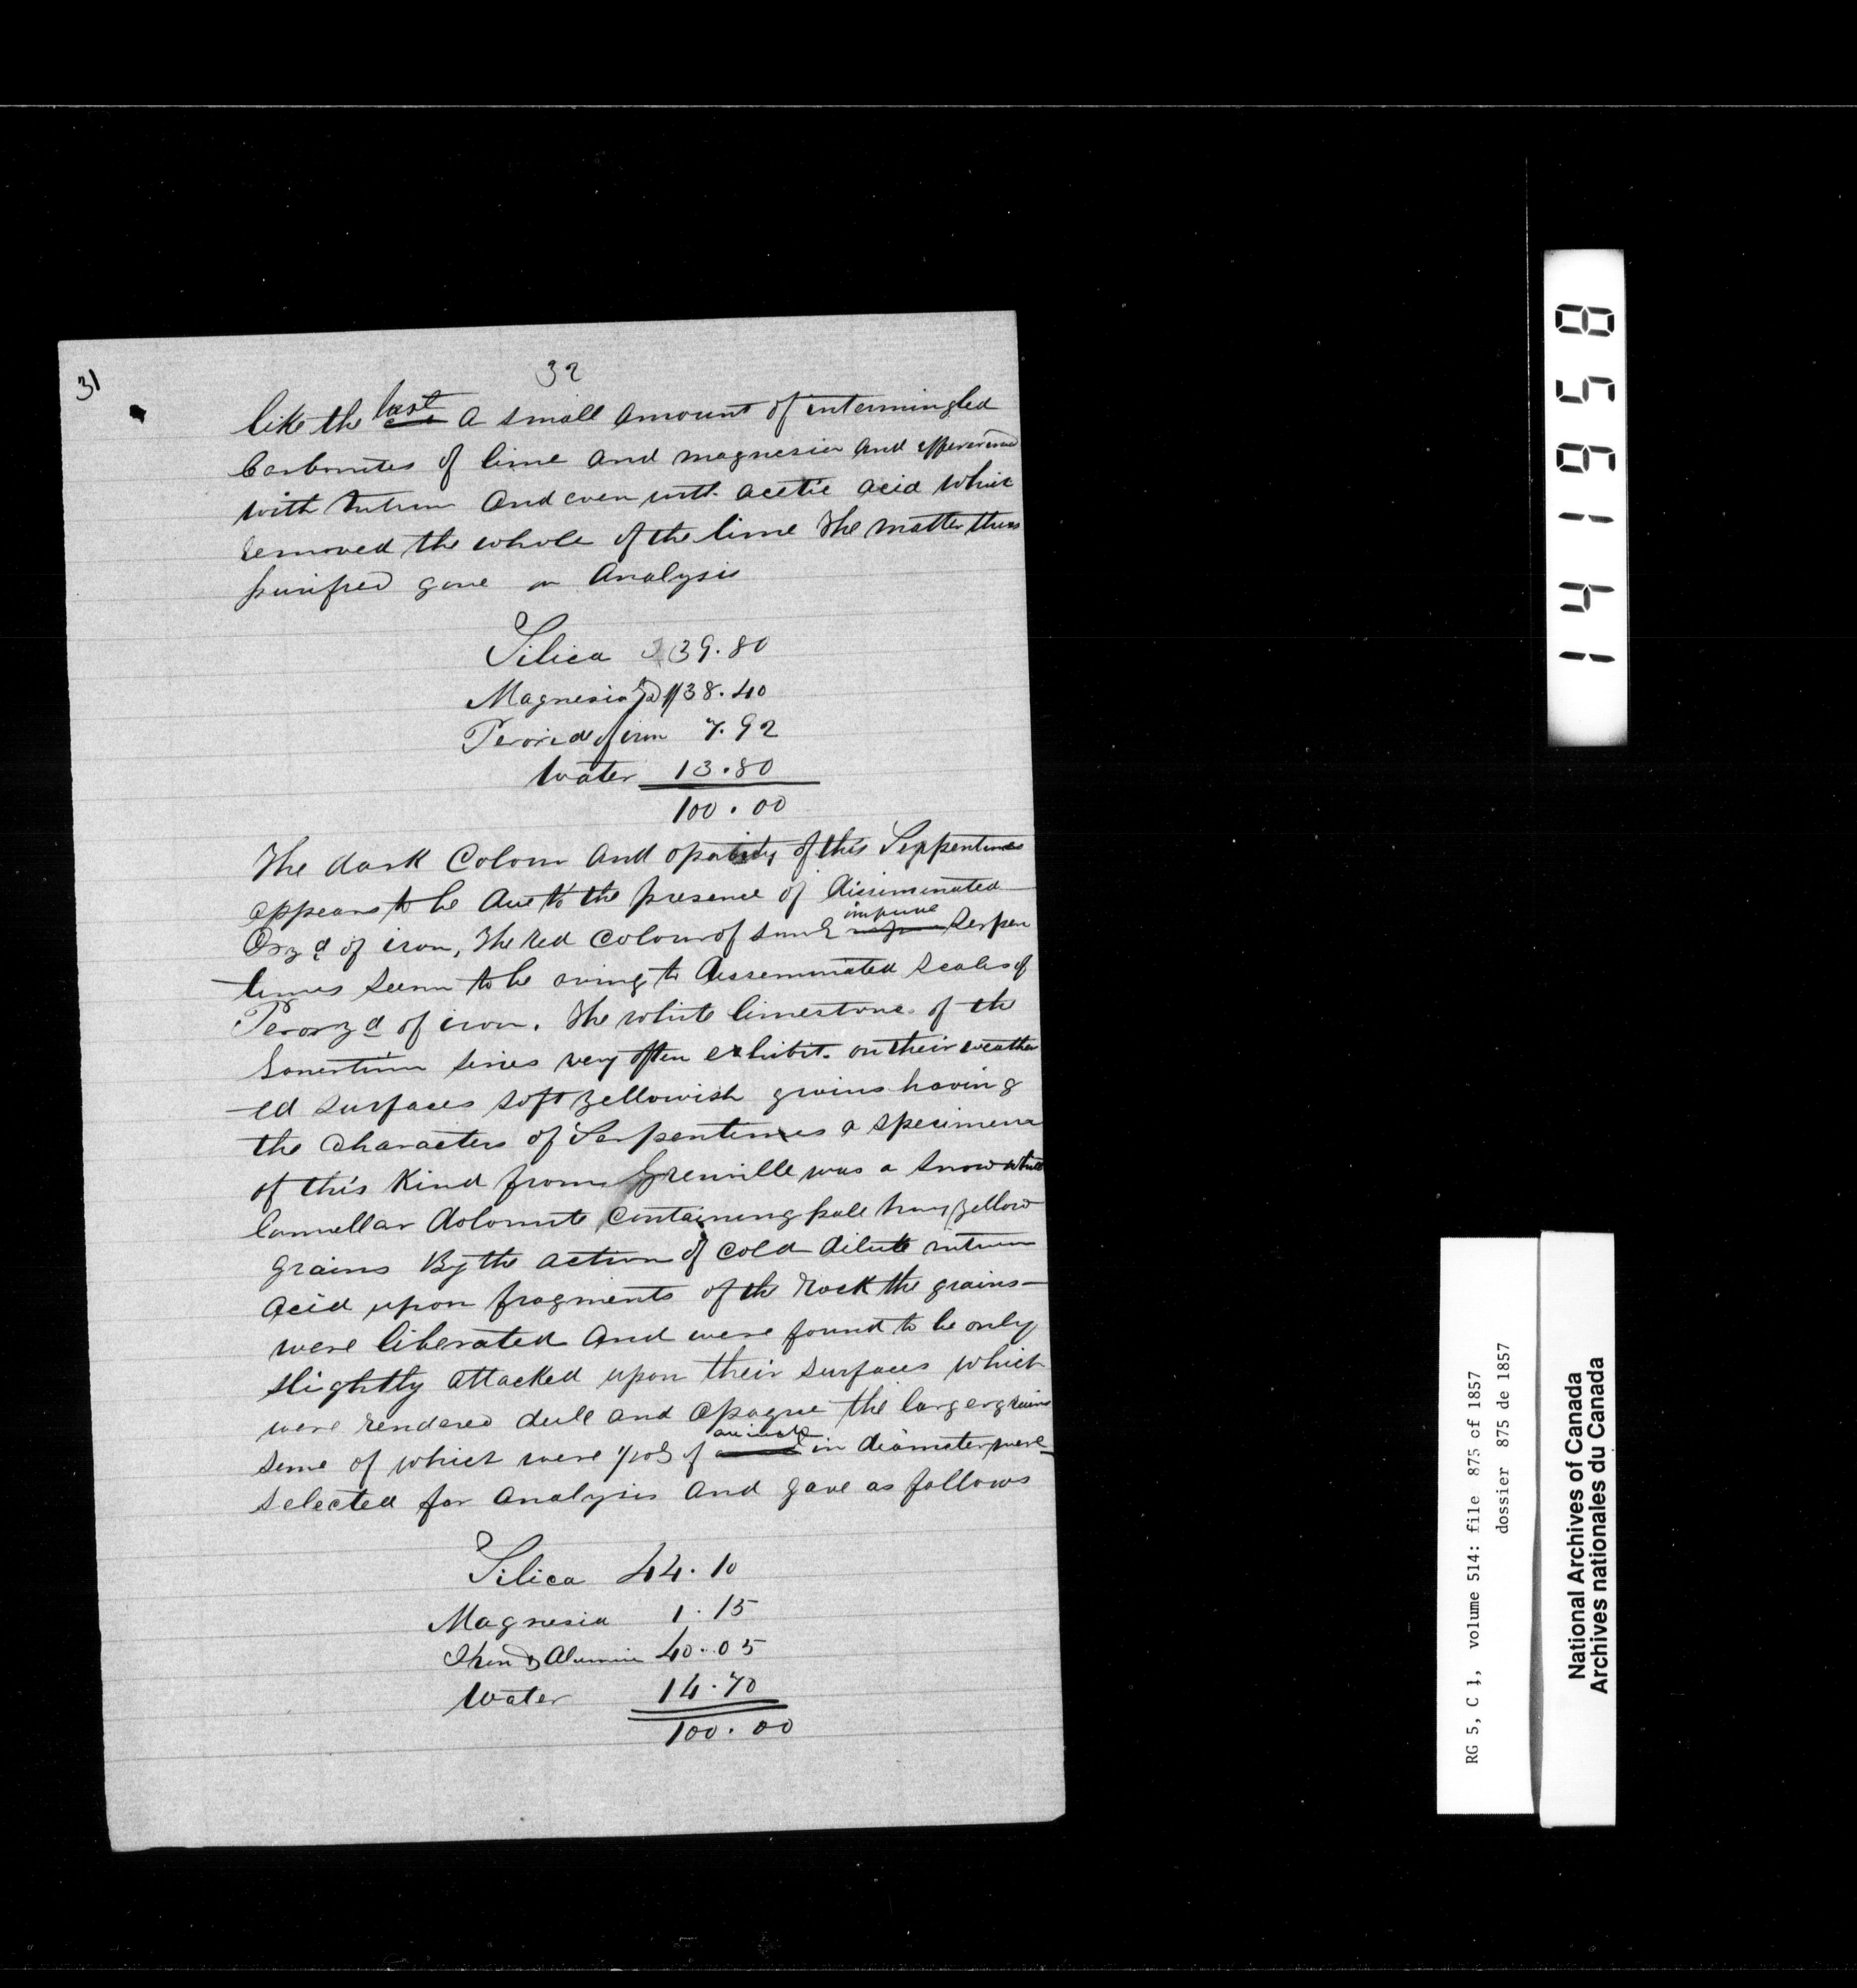 31
32
like the last a small amount of intermingled
Carbonates of lime and magnesia and effervesced
with nitric and even with acetic acid which
removed the whole of the lime The matter thus
purified gave on Analysis
Silica 39.80
Magnesia 38.40
Peroxide of iron 7.92
Water 13.80
100.00
The dark Colour and opacity of this Serpentines
appears to be due to the presence of dissiminated
Oxyd of iron, The red colour of some impure Serpen
tines seem to be owing to disseminated scales of
Peroxyd of iron. The white limestone of the
Laurentian series very often exhibit on their weather
-ed surfaces soft yellowish grains having
the characters of Serpentines a specimen
of this Kind from Grenville was a snow white
lamellar dolomite containing pale honey yellow
grains By the action of cold dilute nitric
acid upon fragments of the Rock the grains
were liberated and were found to be only
slightly attacked upon their surfaces which
were rendered dull and opaque the larger grains
some of which were of an inch in diameter were
selected for analysis and gave as follows
Silica 44.10
Magnesia 1.15
Iron & Alumin 40.05
Water 14.70
100.00
141958
RG 5, C 1, volume 514: file 875 of 1857
dossier 875 de 1857
National Archives of Canada
Archives nationales du Canada